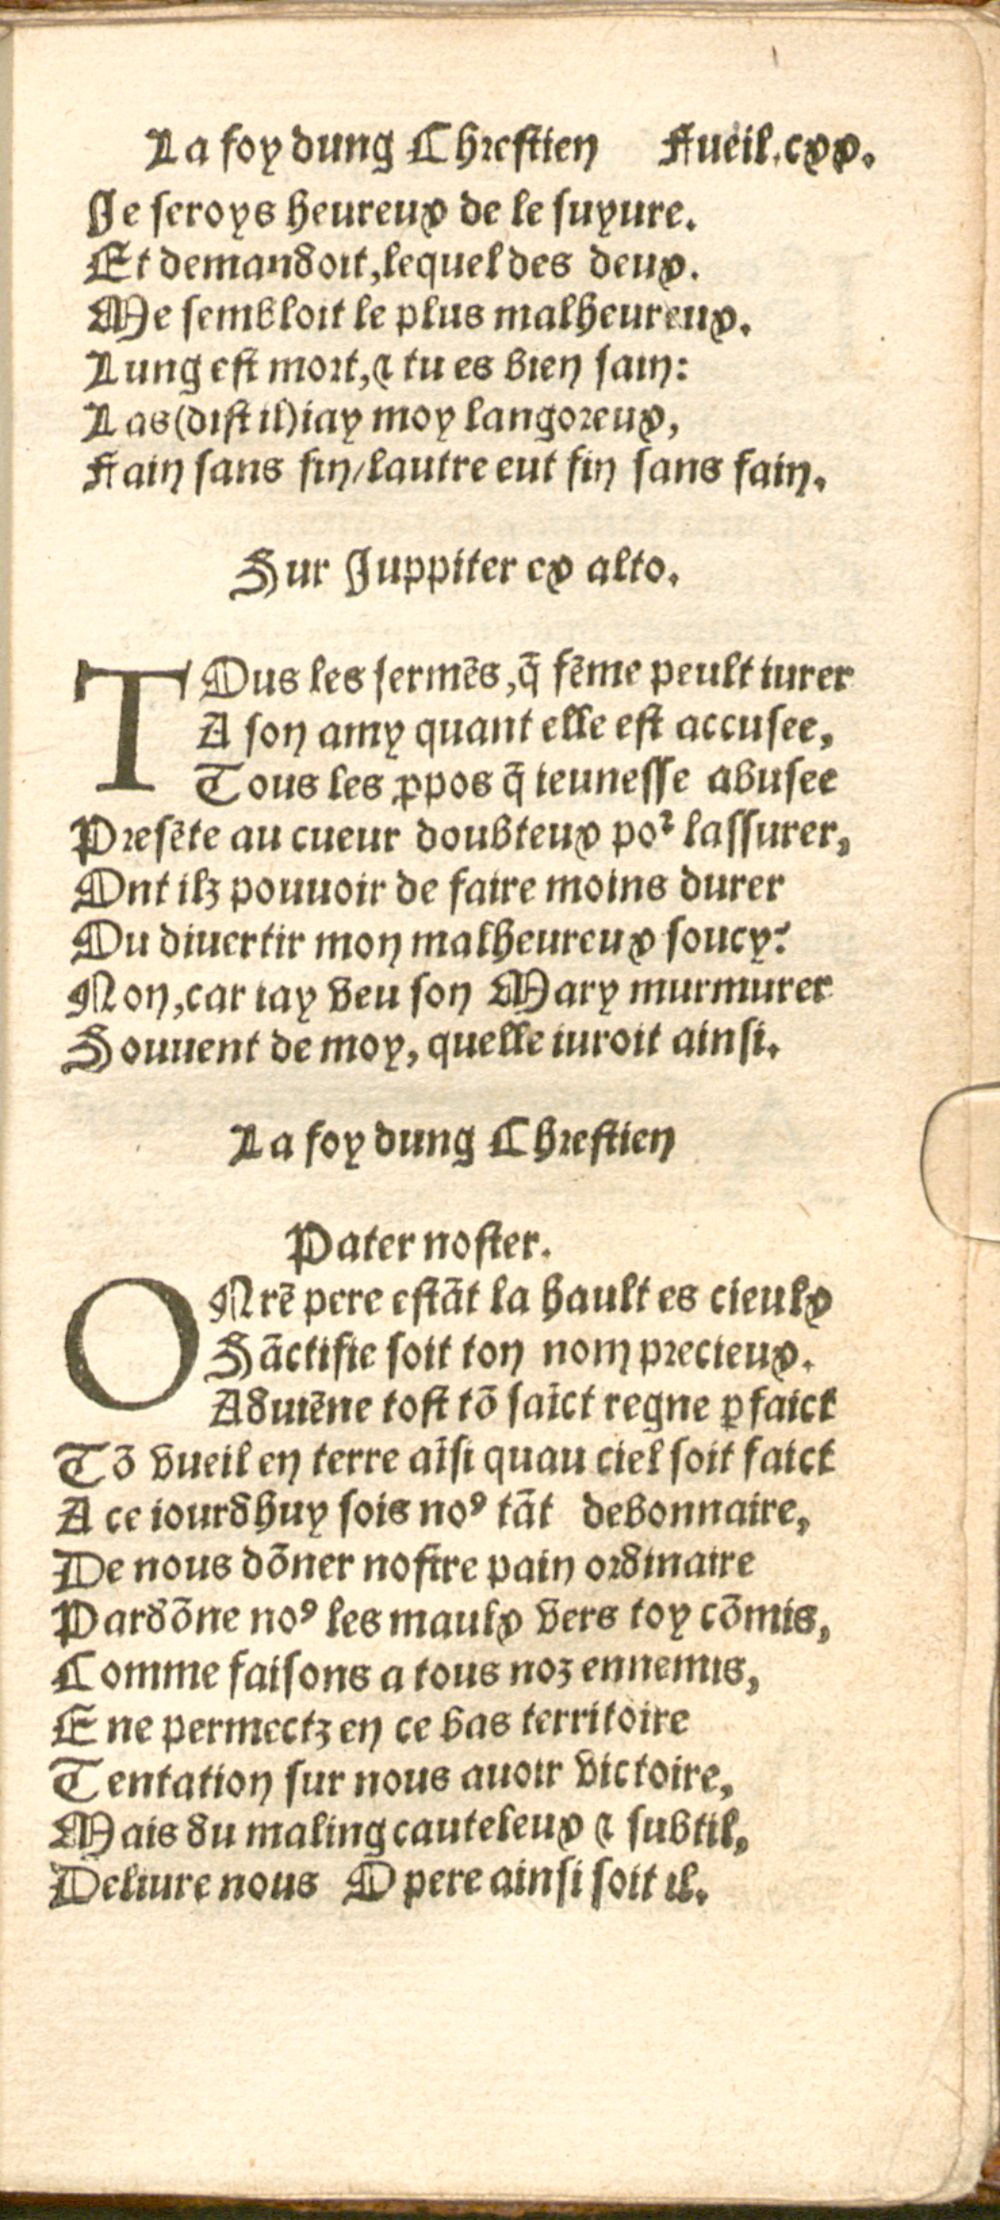 La foy dung Chrestien Fueil.cxx.
Je seroys heureux de le suyure.
Et demandoit, lequel des deux.
Me sembloit le plus malheureux.
Lung est mort, ⁊ tu es bien sain:
Las (dist il) iay moy langoreux,
Fain sans fin/lautre eut fin sans fain.
Sur Juppiter ex alto.
TOus les sermẽs, q̃ fẽme peult iurer
A son amy quant elle est accusee,
Tous les ꝓpos q̃ ieunesse abusee
Presẽte au cueur doubteux poꝰ lassurer,
Ont ilz pouuoir de faire moins durer
Ou diuertir mon malheureux soucy?
Non, car iay veu son Mary murmurer
Souuent de moy, quelle iuroit ainsi.
La foy dung Chrestien
Pater noster.
O Nrẽ pere estãt la hault es cieulx
Sãctifie soit ton nom precieux.
Aduiẽne tost tõ saĩct regne ꝑfaict
Tõ vueil en terre aĩsi quau ciel soit faict
A ce iourdhuy sois noꝰ tãt debonnaire,
De nous dõner nostre pain ordinaire
Pardõne noꝰ les maulx vers toy cõmis,
Comme faisons a tous noz ennemis,
E ne permectz en ce bas territoire
Tentation sur nous auoir victoire,
Mais du maling cauteleux ⁊ subtil,
Deliure nous O pere ainsi soit il.